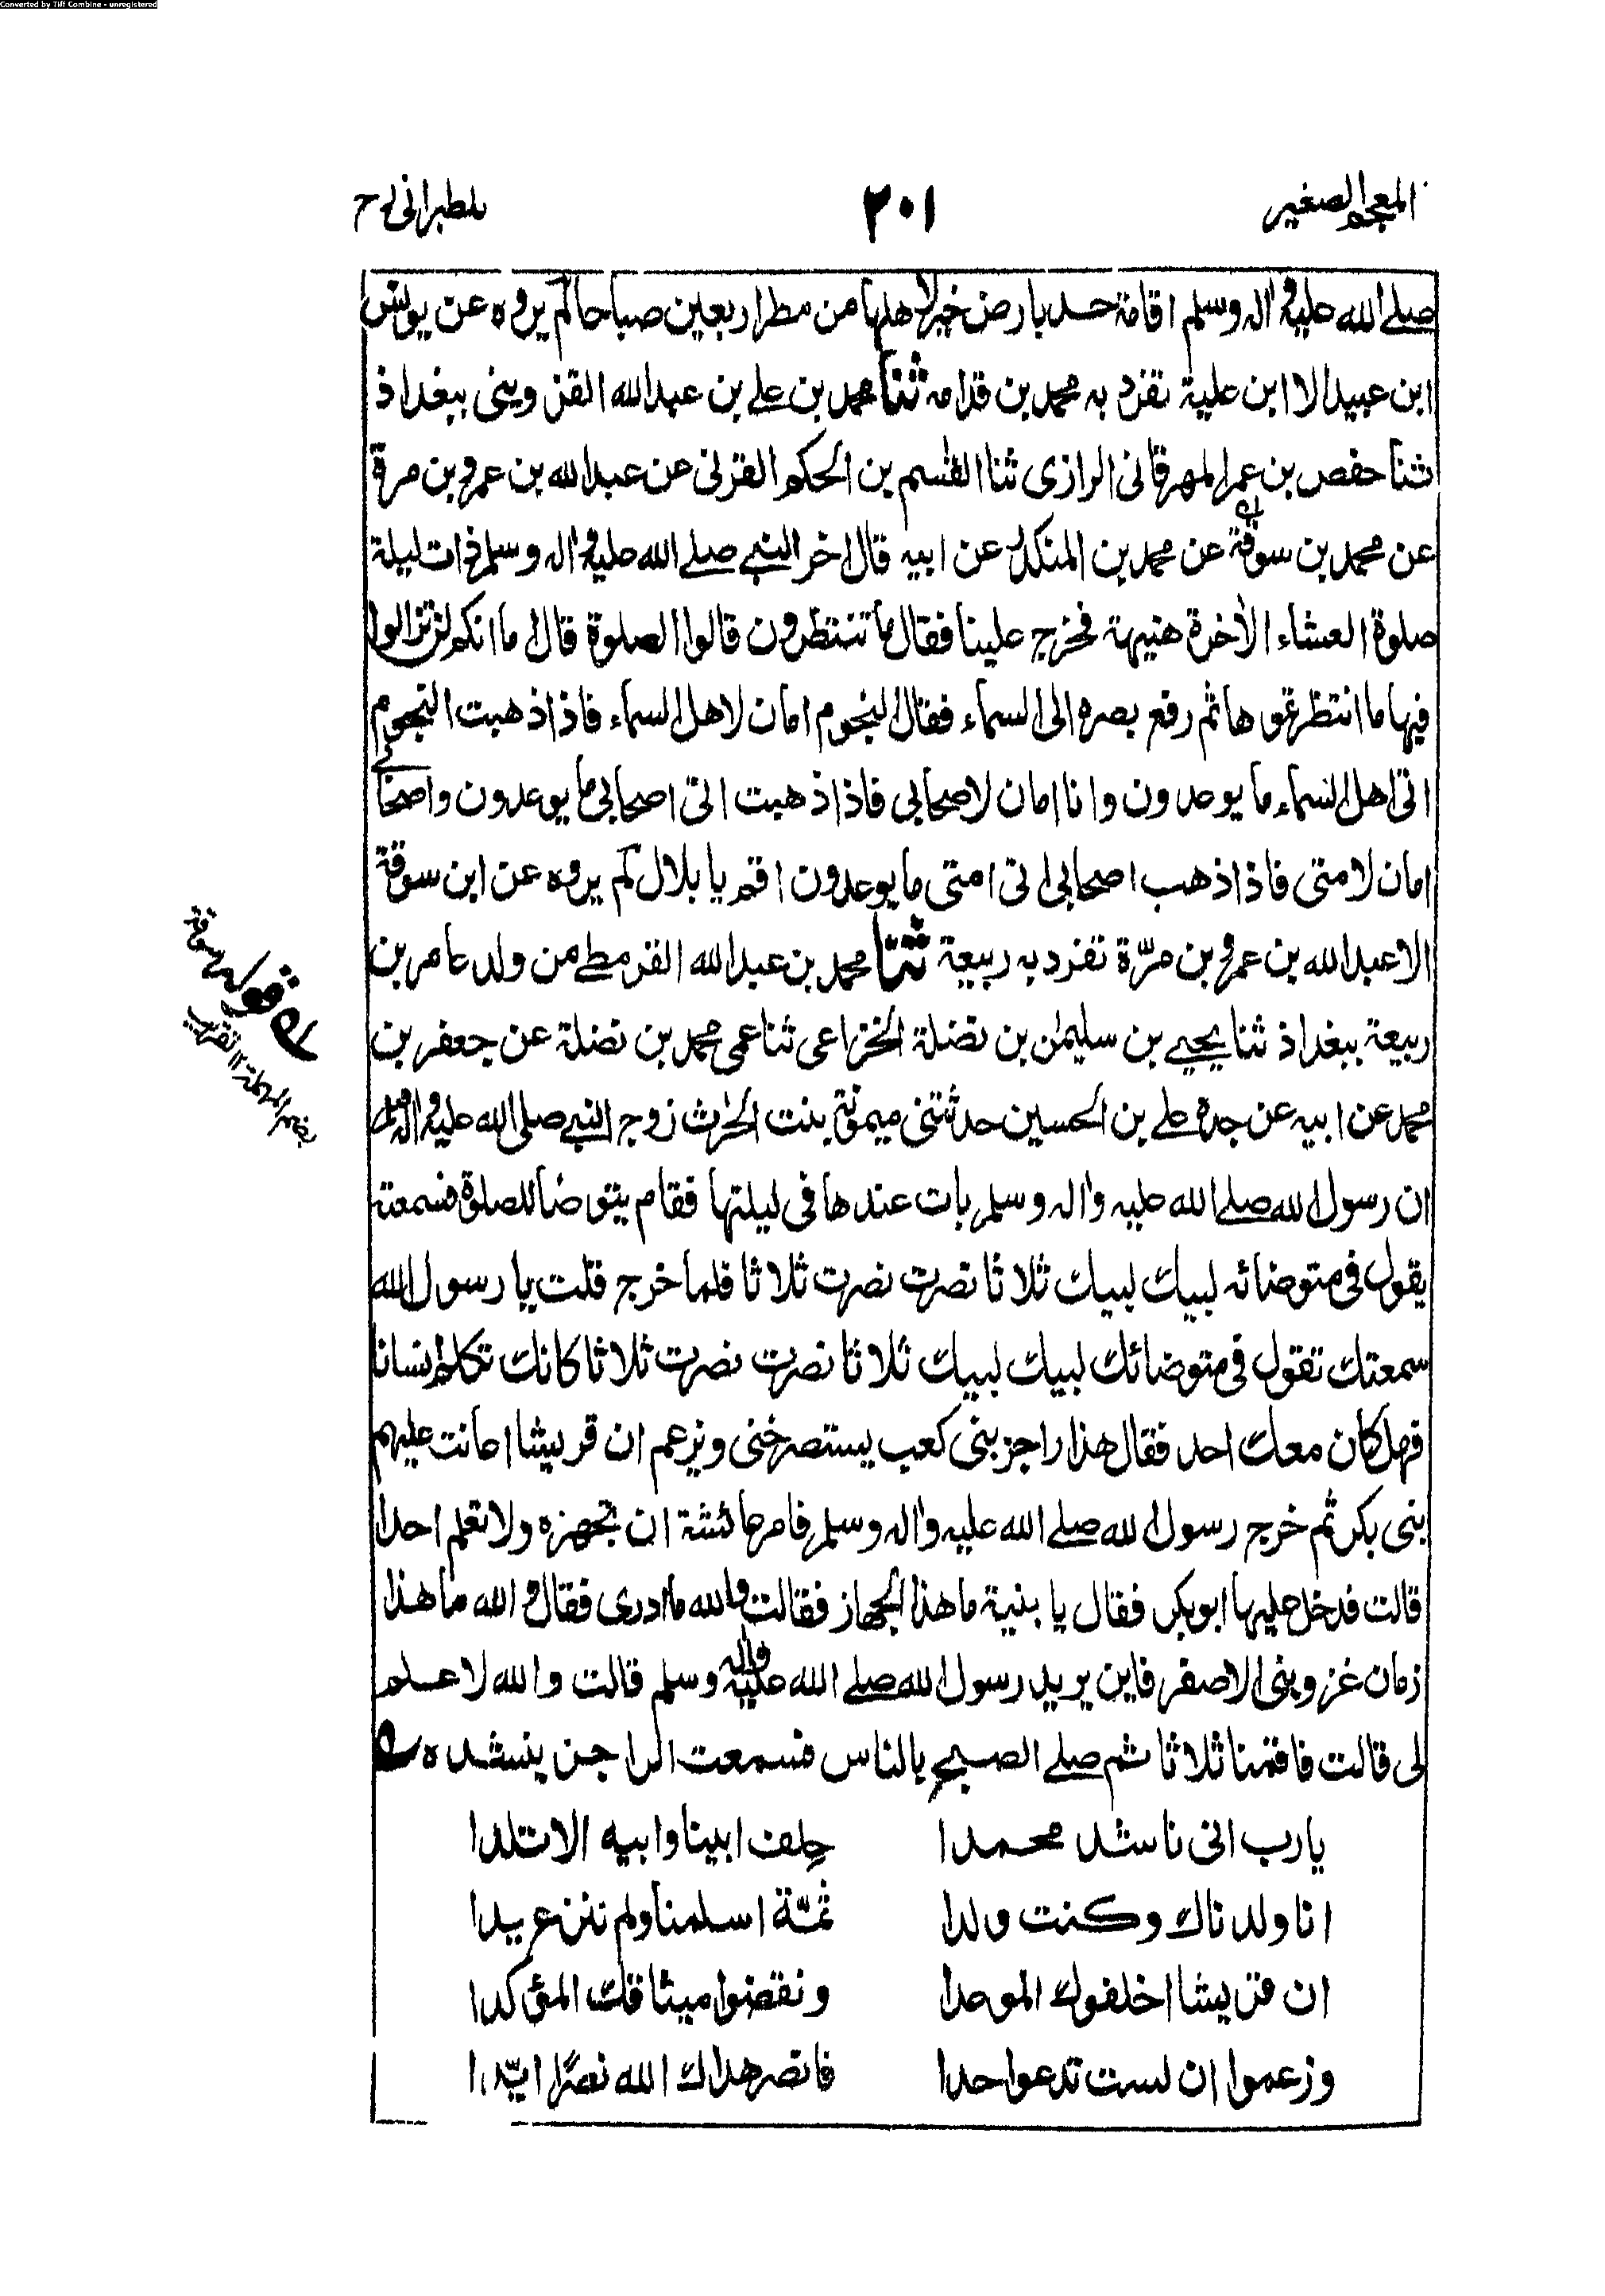 Converted by Tiff Combine - unregistered
المعجم الصغير
٢٠١
للطبرانی رح
صلے الله علیه واله وسلم اقامة حد بارض خیر لاهلها من مطر اربعین صباحا لم یروه عن یونس
ابن عبید الا ابن علیة تفرد به محمد بن قدامه ثنا محمد بن علی بن عبدالله القزوینی ببغداذ
ثنا حفص بن عمر المهرقانی الرازی ثنا القٰسم بن الحکم العرنی عن عبدالله بن عمرو بن مرة
عن محمد بن سوقة عن محمد بن المنکدر عن ابیه قال اخر النبی صلے الله علیه واله وسلم ذات لیلة
صلوة العشاء الاٰخرة هنیهة فخرج علینا فقال ما تنتظرون قالوا الصلوة قال اما انکم لن تزالوا
فیها ما انتظرتموها ثم رفع بصره الی السماء فقال النجوم امان لاهل السماء فاذا ذهبت النجوم
اتی اهل السماء ما یوعدون وانا امان لاصحابی فاذا ذهبت اتی اصحابی ما یوعدون واصحابی
امان لامتی فاذا ذهب اصحابی اتی امتی ما یوعدون اقم یا بلال لم یروه عن ابن سوقة
الا عبدالله بن عمرو بن مرّة تفرد به ربیعة ثنا محمد بن عبدالله القرمطی من ولد عامر بن
ربیعة ببغداذ ثنا یحیی بن سلیمٰن بن نضلة الخزاعی ثنا عمی محمد بن نضلة عن جعفر بن
محمد عن ابیه عن جده علی بن الحسین حدثتنی میمونة بنت الحٰرث زوج النبی صلی الله علیه واله وسلم
ان رسول الله صلے الله علیه واٰله وسلم بات عندها فی لیلتها فقام یتوضا للصلوة فسمعته
یقول فی متوضائه لبیك لبیك ثلاثا نصرت نصرت ثلاثا فلما خرج قلت یا رسول الله
سمعتك تقول فی متوضائك لبیك لبیك ثلاثا نصرت نصرت ثلاثا کانك تکلم انسانا
فهل کان معك احد فقال هذا راجز بنی کعب یستصرخنی ویزعم ان قریشا اعانت علیهم
بنی بکر ثم خرج رسول الله صلے الله علیه واٰله وسلم فامر عائشة ان تجهزه ولا تعلم احدا
قالت فدخل علیها ابوبکر فقال یا بنیة ما هذا الجهاز فقالت والله ما ادری فقال والله ما هذا
زمان غزو بنی الاصفر فاین یرید رسول الله صلے الله علیه واله وسلم قالت والله لا علم
لی قالت فاقمنا ثلاثا ثم صلے الصبح بالناس فسمعت الراجز ینشده
یارب انی ناشد محمدا حِلف ابینا وابیه الاتلدا
انا ولدناك وکنت ولدا ثمّة اسلمنا ولم ننزع یدا
ان قریشا اخلفوك الموعدا ونقضوا میثاقك المؤکدا
وزعموا ان لست تدعو احدا فانصر هداك الله نصرًا ایّدا
قوله سوقة
بضم المهملة ١٢ تقریب